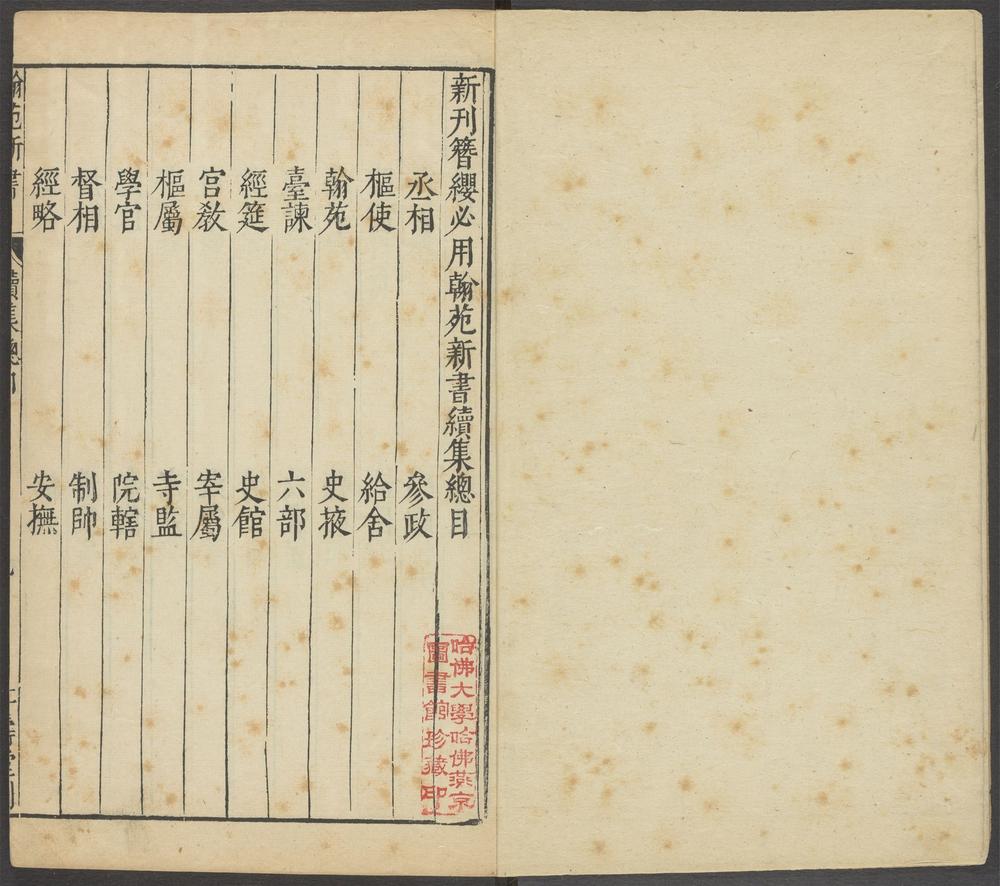 新刊簪纓必用翰苑新書續集總目
丞相 參政
樞使 給舍
翰苑 史掖
臺諫 六部
經筵 史館
宮教 宰屬
樞屬 寺監
學官 院轄
督相 制帥
經略 安撫
翰苑新書 續集總目
哈佛大學哈佛燕京
圖書館珍藏印